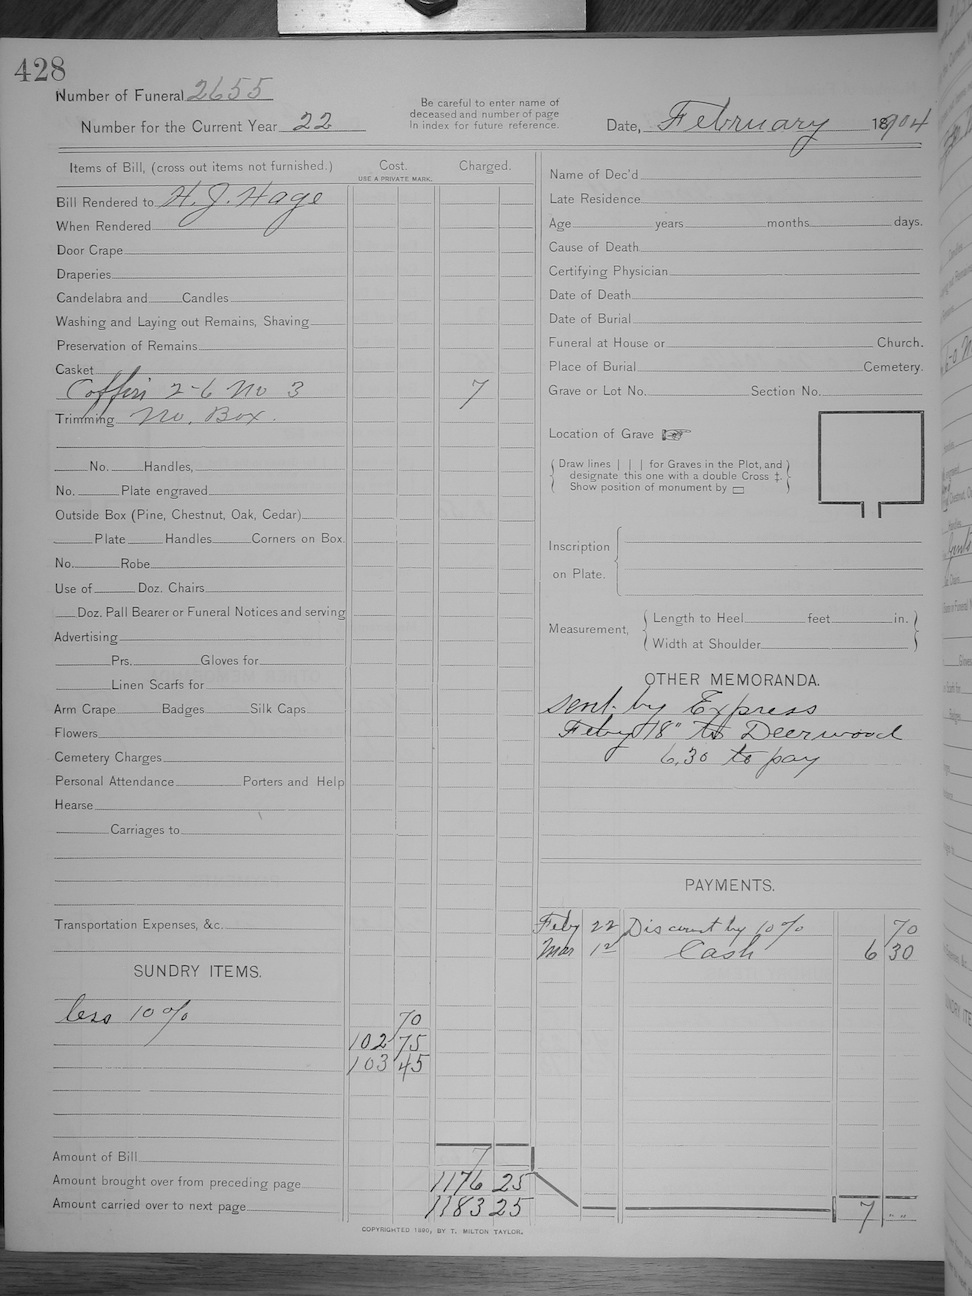 428
Number of Funeral 2655
Number for the Current Year 22
Be careful to enter name of
deceased and number of page
in index for future reference.
Date, February 1904
Items of Bill, (cross out items not furnished.)
Cost.
USE A PRIVATE MARK.
Charged.
Bill Rendered to H. J. Hage
When Rendered
Door Crape
Draperies
Candelabra and Candles
Washing and Laying out Remains, Shaving
Preservation of Remains
Casket
Coffin 2-6 No 3 7
Trimming No. Box.
No. Handles,
No. Plate engraved
Outside Box (Pine, Chestnut, Oak, Cedar)
Plate Handles Corners on Box.
No. Robe
Use of Doz. Chairs
Doz. Pall Bearer or Funeral Notices and serving
Advertising
Prs. Gloves for
Linen Scarfs for
Arm Crape Badges Silk Caps
Flowers
Cemetery Charges
Personal Attendance Porters and Help
Hearse
Carriages to
Transportation Expenses, &c.
SUNDRY ITEMS.
less 10% 70
102 75
103 45
Amount of Bill 7
Amount brought over from preceding page 1176 25
Amount carried over to next page 1183 25
Name of Dec'd
Late Residence
Age years months days.
Cause of Death
Certifying Physician
Date of Death
Date of Burial
Funeral at House or Church.
Place of Burial Cemetery.
Grave or Lot No. Section No.
Location of Grave
Draw lines | | | for Graves in the Plot, and
designate this one with a double Cross ‡.
Show position of monument by ▭
Inscription
on Plate.
Measurement,
Length to Heel feet in.
Width at Shoulder
OTHER MEMORANDA.
sent by Express
Feby 18" to Deerwood
6.30 to pay
PAYMENTS.
Feby 22 Discount by 10% 70
Mar 12 Cash 6 30
7 " "
COPYRIGHTED 1890, BY T. MILTON TAYLOR.